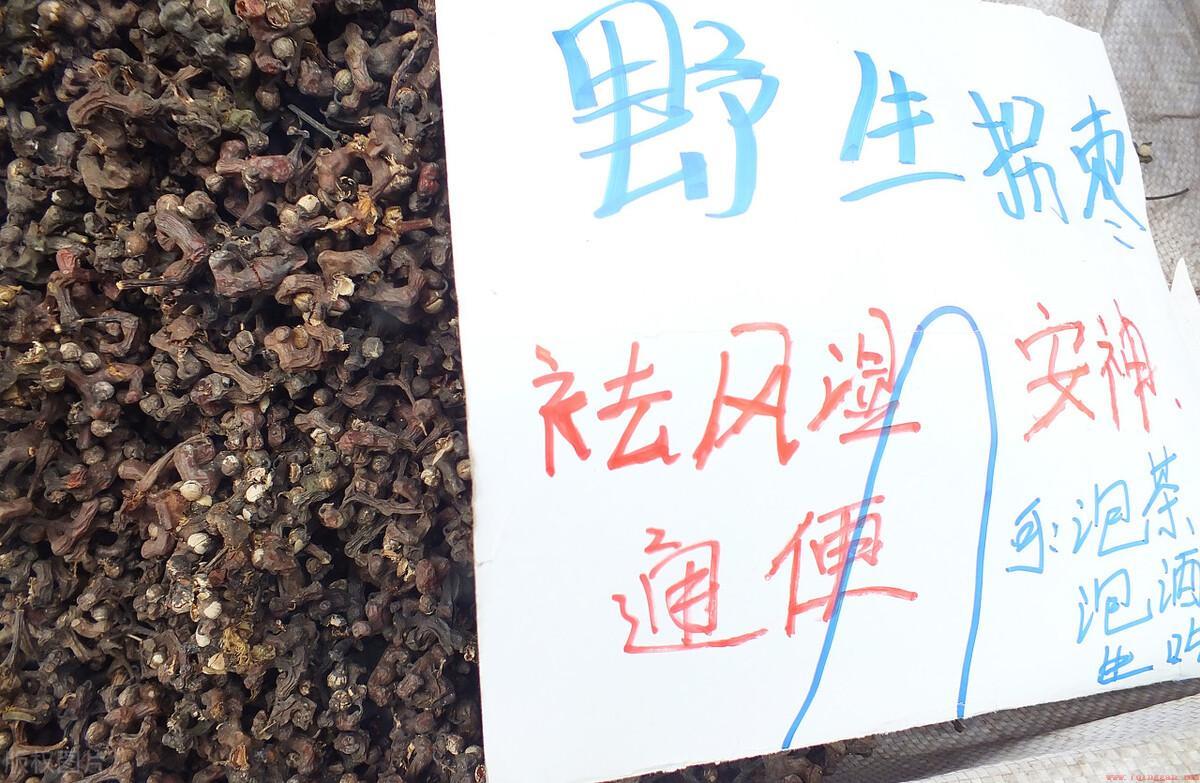 野生拐枣
祛风湿
安神、
通便
可:泡茶
泡酒
生吃
版权图片